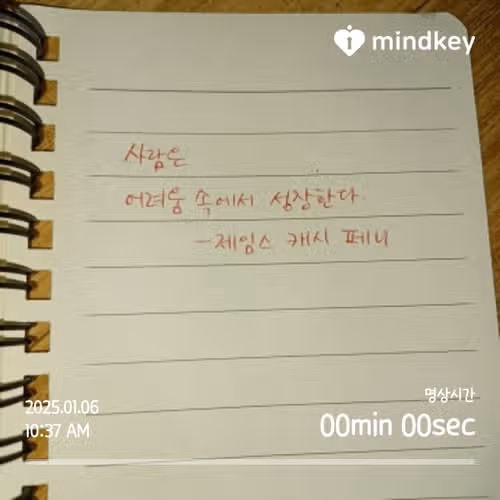 mindkey
사람은
어려움 속에서 성장한다.
- 제임스 캐시 페니
2025.01.06
10:37 AM
명상시간
00min 00sec